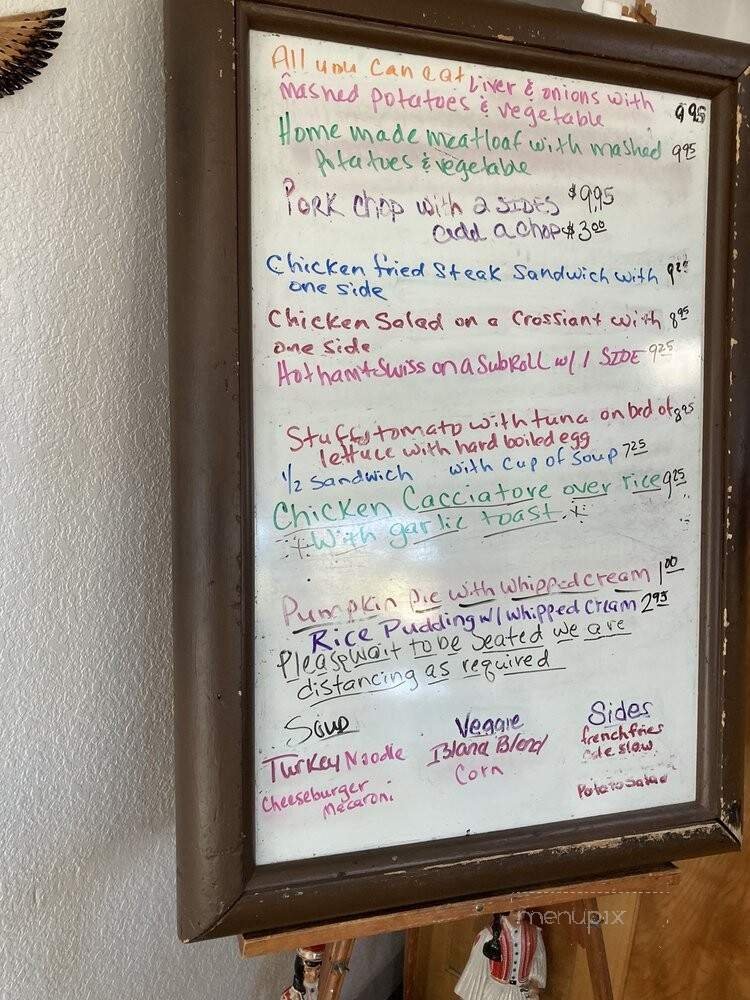 All you can eat Liver & onions with
mashed potatoes & vegetable 9.95
Home made meatloaf with mashed 9.95
potatoes & vegetable
Pork chop with 2 SIDES $9.95
add a chop $3.00
Chicken fried Steak Sandwich with
one side
Chicken Salad on a Crossiant with 8.95
one side
Hot ham + Swiss on a Sub Roll w/ 1 SIDE 9.25
Stuff tomato with tuna on bed of 8.95
lettuce with hard boiled egg
1/2 Sandwich with Cup of Soup 7.25
Chicken Cacciatore over rice 9.25
With garlic toast.
Pumpkin Pie with whipped cream 1.00
Rice Pudding w/ whipped cream 2.95
Please wait to be Seated we are
distancing as required
Soup Veggie Sides
Turkey Noodle Island Blend french fries
Cheeseburger Macaroni Corn Cole slaw
Potato Salad
menupix